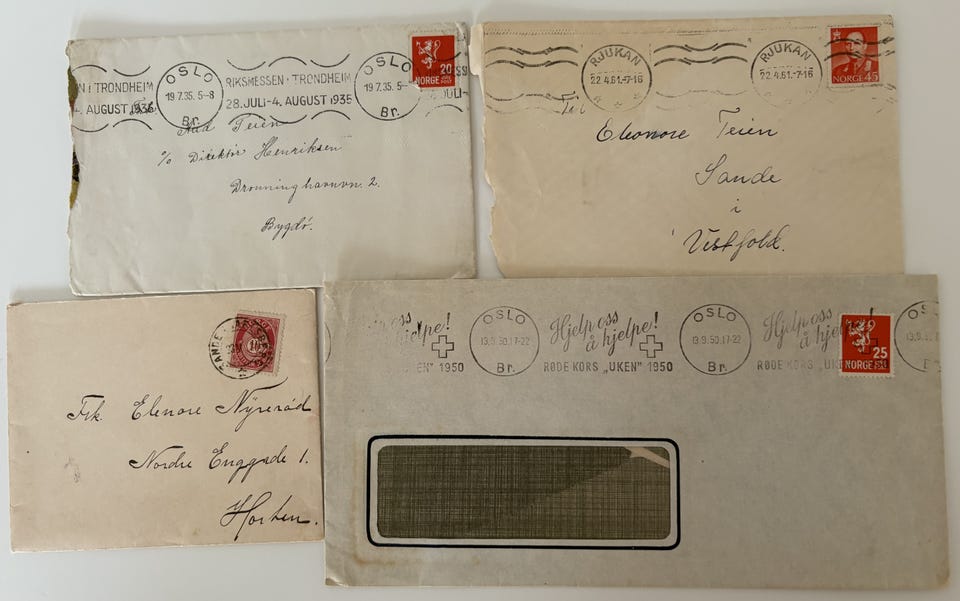 N I TRONDHEIM
4. AUGUST 1935
OSLO
19.7.35. 5-8
Br.
RIKSMESSEN I TRONDHEIM
28. JULI-4. AUGUST 1935
OSLO
19.7.35. 5-8
Br.
20
NORGE
Teien
c/o Direktør Henriksen
Dronninghavnvn. 2.
Bygdø.
RJUKAN
22.4.61.-7-16
RJUKAN
22.4.61.-7-16
NORGE 45
Eleonore Teien
Sande
i
Vestfold.
10
Frk. Elenore Nyrerød
Nordre Enggade 1.
Horten.
oss
hjelpe!
EN" 1950
OSLO
13.9.50.17-22
Br.
Hjelp oss
å hjelpe!
RØDE KORS „UKEN" 1950
OSLO
13.9.50.17-22
Br.
Hjelp oss
å hjelpe!
RØDE KORS „UK
25
NORGE
OS
13.9.5
Br.